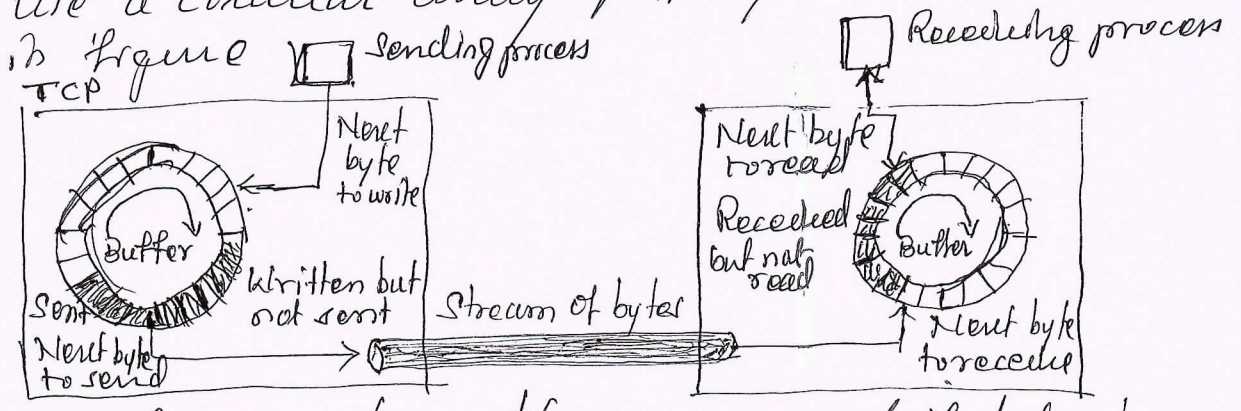 use a circular array
is figure
Sending process
Receiving process
TCP
Next
byte
to write
Buffer
Sent
Written but
not sent
Next byte
to send
Stream of bytes
Next byte
to read
Received
but not
read
Buffer
Next byte
to receive